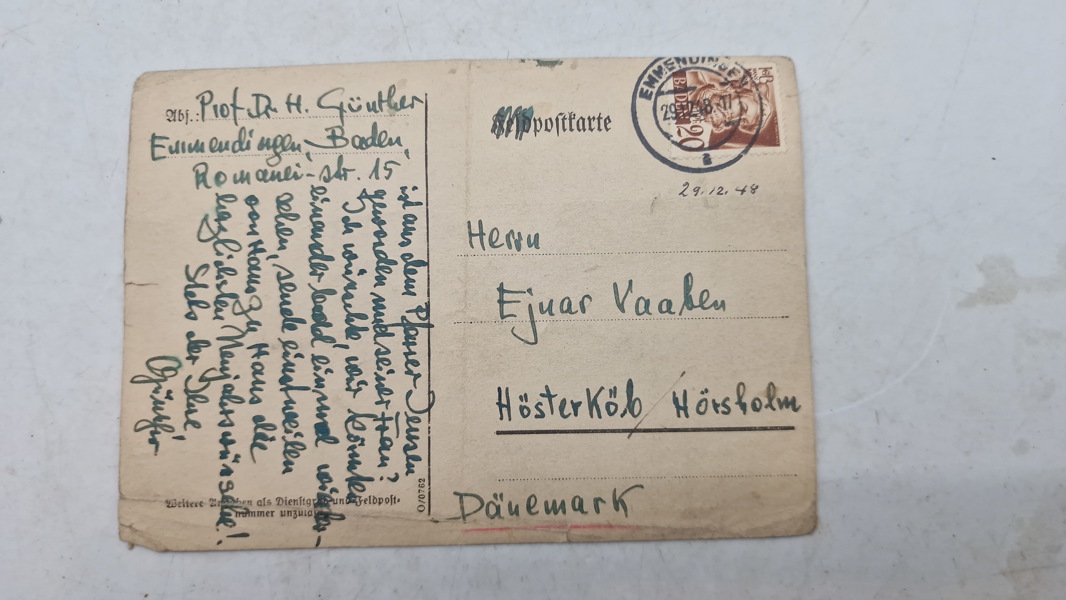 Abs.: Prof. Dr. H. Günther
Emmendingen, Baden,
Romanei-str. 15
ist aus dem Pfarrer Jensen
geworden und seiner Frau?
Ich wünschte, wir könnten
einander bald einmal wieder-
sehen, sende einstweilen
von Haus zu Haus die
herzlichsten Neujahrswünsche!
Stets der Ihre,
Günther
Weitere Angaben als Dienstgrad und Feldpost-
nummer unzulässig
O/0762
Feldpostkarte
EMMENDINGEN
29.12.48.-17
a
BADEN
20
29.12.48
Herrn
Ejnar Vaaben
Hösterköb / Hörsholm
Dänemark